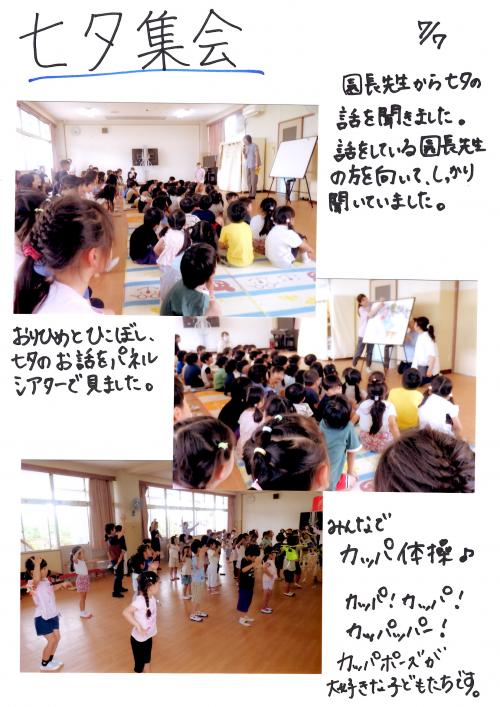 七夕集会
7/7
園長先生から七夕の
話を聞きました。
話をしている園長先生
の方を向いて、しっかり
聞いていました。
おりひめとひこぼし、
七夕のお話をパネル
シアターで見ました。
みんなで
カッパ体操♪
カッパ!カッパ!
カッパッパー!
カッパポーズが
大好きな子どもたちです。